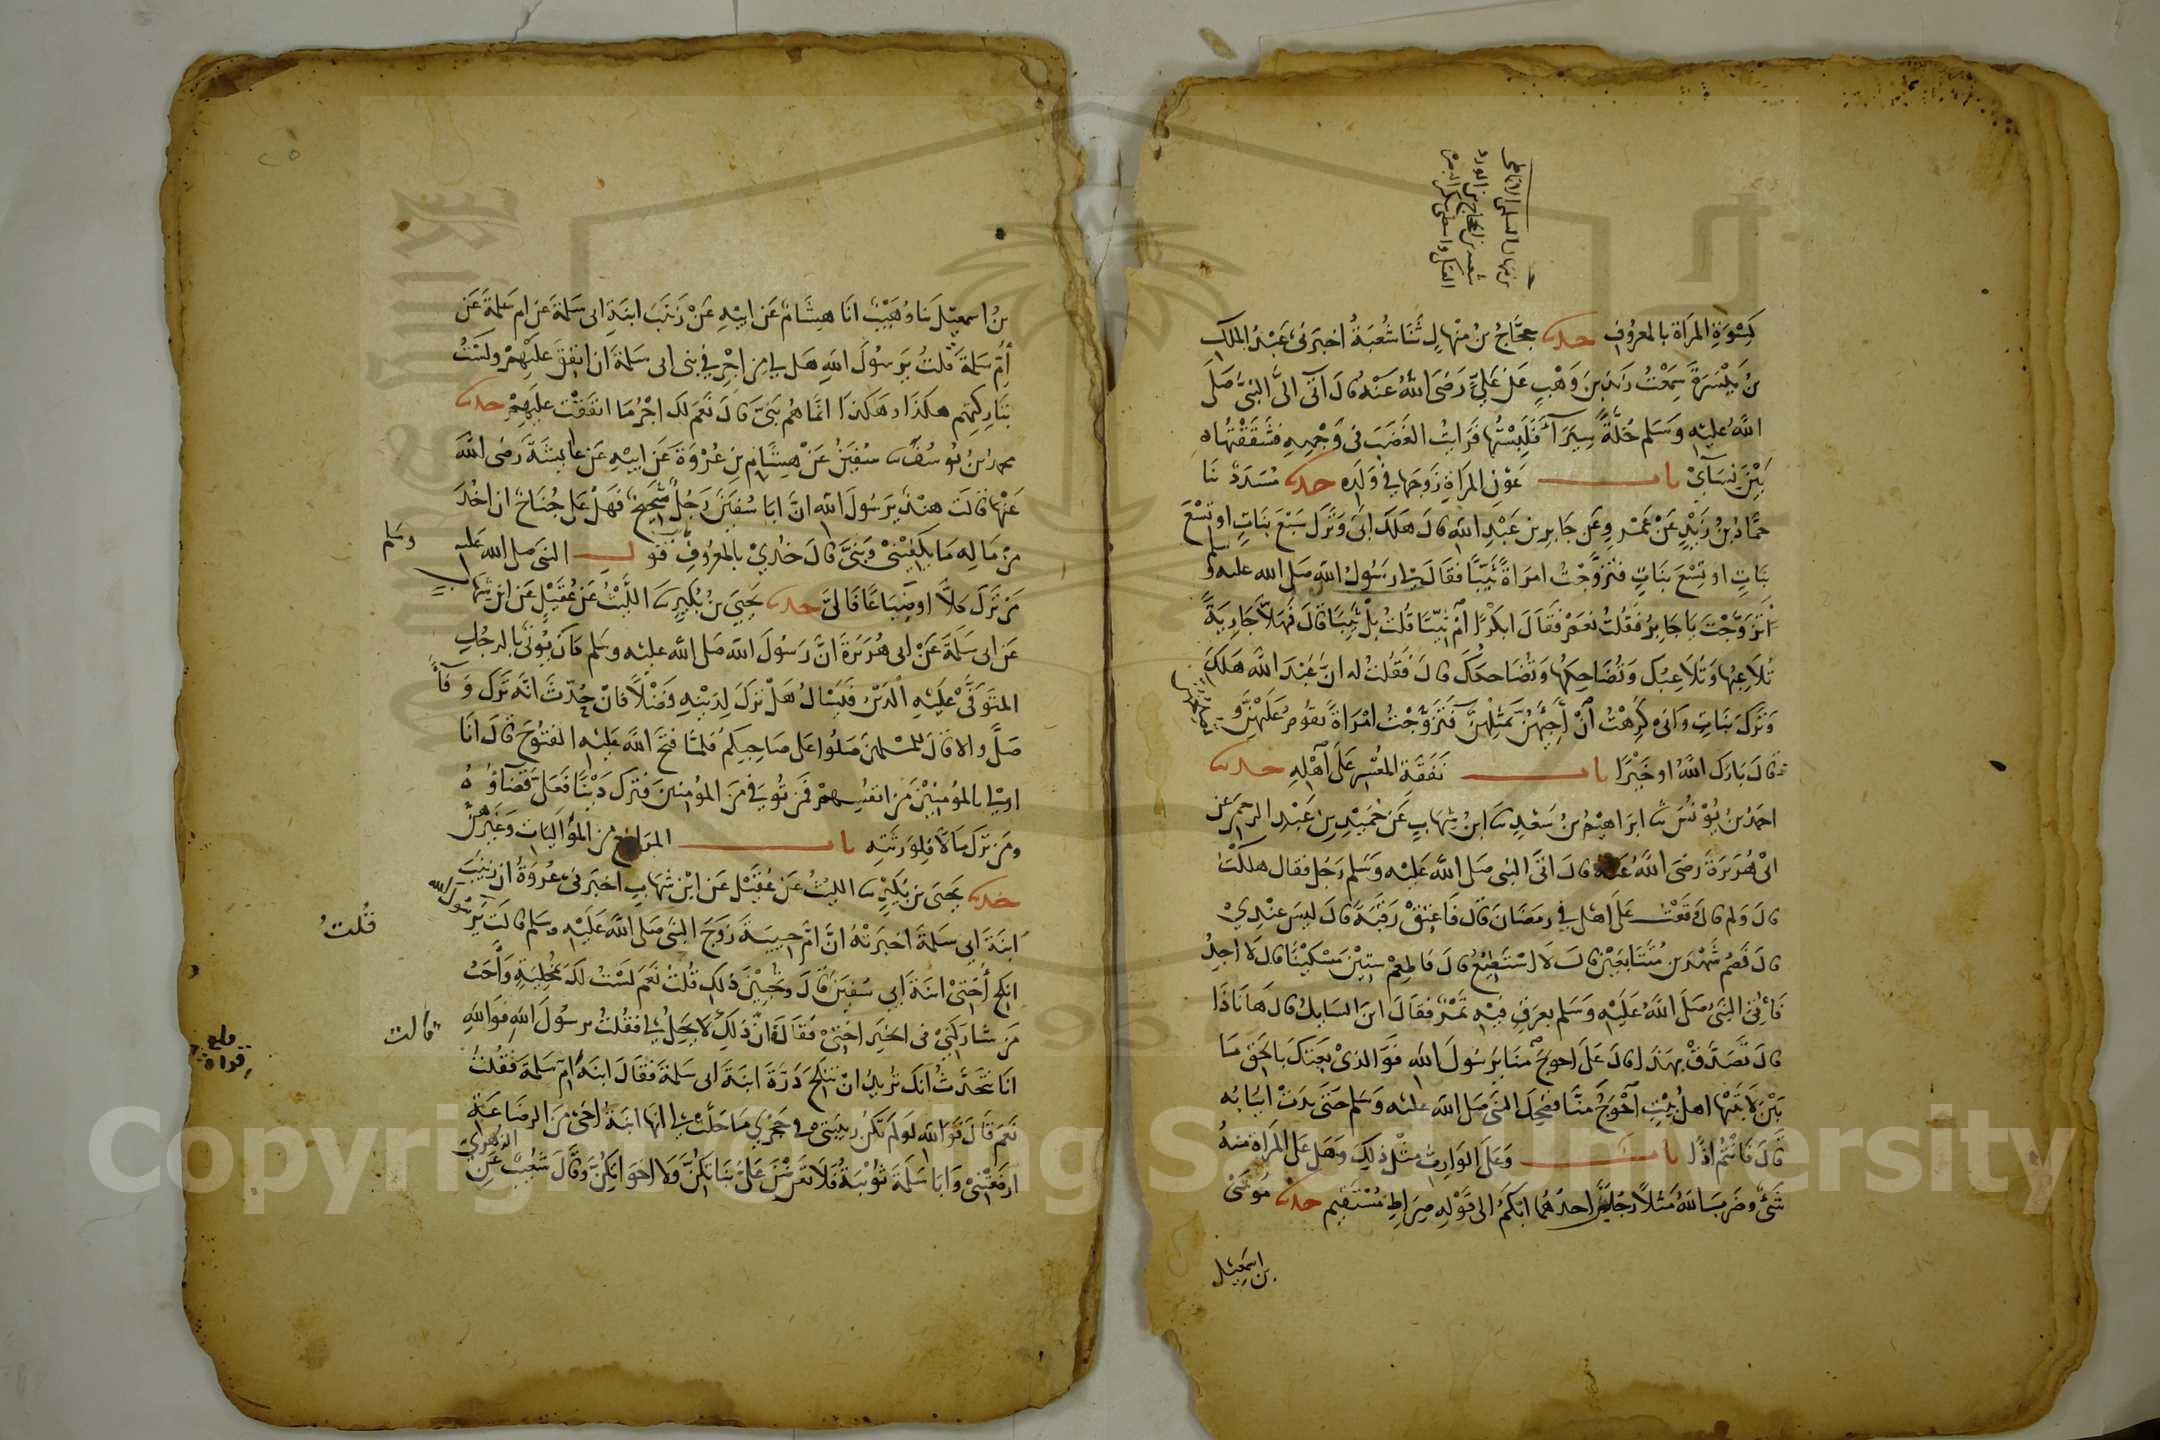 بن منهال السلمي الانماطي
شعبة بن الحجاج بن الورد
العتكي واسطي سكن البصرة
كِسْوَةِ المرَاة بالمعرُوفِ حدثنا حجَّاجُ بنُ منْهالٍ ثَنَا شُعْبَةُ اخبَرَنى عَبْدُ الملك
بنُ مَيْسَرَةَ سَمِعْتُ زيدَ بنَ وَهْبٍ عَنْ عَلِيٍّ رَضىَ اللهُ عَنْهُ قالَ آتَى اليَّ النبيُّ صَلَّى
اللهُ عليْهِ وَسَلم حُلَّةً سِيَرَآءَ فَلَبِسْتُها فَرَايتُ الغَضَبَ فى وَجْهِهِ فشَقَقْتُهاه
بَيْنَ نِسَآئِى باب عَوْنِ المرَاةِ زَوجَها فى وَلَدِه حدثنا مُسَدَّدٌ نَا
حمَّادُ بنُ زَيْدٍ عَنْ عَمْرٍو عَن جَابِرِ بنِ عَبْدِ اللهِ قالَ هَلَكَ ابى وَتَرَك سَبْعَ بَنَاتٍ او تِسْعَ
بَنَاتٍ او تِسْعَ بَنَاتٍ فتزَوَّجْتُ امرَاةً ثَيِّبًا فقَالَ لي رسُولُ اللهِ صَلى الله عليه وسلم
اتَزَوَّجْتَ يَا جَابِرُ فقُلتُ نعَمْ فقَالَ ابِكْرًا أمْ ثيِّبًا قُلتُ بلْ ثَيِّبًا قالَ فَهَلاَّ جَارِيَةً
تُلاَعِبُهَا وَتُلاَعِبُك وَتُضَاحِكُهَا وَتُضَاحكُكَ قالَ فقُلتُ له انَّ عَبْدَ اللهِ هَلَكَ
وَتَرَكَ بَنَاتٍ وَانى كَرِهْتُ أنْ أَجِيئَهُنَّ بمثلِهِنَّ فَتَزَوَّجْتُ امْرَاةً تقُومُ عَلَيْهِنَّ و
قالَ بَارَكَ اللهُ او خَيْرًا باب نَفَقَةِ المُعْسِرِ عَلَى أَهْلِهِ حدثنا
احمَدُ بنُ يُونُسَ نَا ابرَاهِيْمُ بنُ سَعْدٍ نَا ابنُ شِهَابٍ عَن حُمَيْدِ بنِ عَبْدِ الرحمن عَن
ابى هُرَيرَةَ رَضىَ اللهُ عَنْهُ قالَ اتَى النبى صَلى اللهُ عَلَيْهِ وَسَلم رَجُلٌ فقال هلكْتُ
قالَ وَلِم قالَ وَقَعْتُ عَلَى أهلى فى رمَضَانَ قالَ فَاعْتِقْ رَقبَةً قالَ ليسَ عِنْدِيْ
قالَ فَصُمْ شَهْرَين مُتَتَابعَيْن قال لا اسْتَطِيْعُ قالَ فاطعِمْ ستينَ مسْكِيْنًا قالَ لا اجِدُ
فَاُتِىَ النبىُّ صَلى اللهُ عَلَيْهِ وَسَلم بعَرَقٍ فِيْهِ تَمْرٌ فقَالَ اينَ السَايلُ قالَ هَا نَاذَا
قالَ تَصَدَّقْ بهَذَا قالَ عَلَى احوَجَ منَّا يَرَسُولَ اللهِ فَوَالذىْ بعَثَكَ بالحَقِّ مَا
بَيْنَ لاَبَتَيْهَا اهلُ بَيْتٍ أحْوَجُ منَّا فضَحِكَ النبى صَلى الله عليْه وَسَلم حَتى بَدَتْ انْيَابُه
قالَ فَانتُمْ اذًا باب وَعَلَى الوَارِثِ مثلُ ذَلِكَ وهَلْ عَلى المرَاةِ منهُ
شَىْءٌ وضَرَبَ اللهُ مَثَلاً رجُلَيْنِ احدُهُما ابكَمُ الى قَوْلِهِ صِرَاطٍ مُسْتَقِيم حدثنا مُوسَى
بن اسمعيل
بنُ اسمعِيْلَ نَا وُهَيْبٌ انَا هِشَامٌ عَن ابيْهِ عَنْ زَيْنَبَ ابنَةِ ابى سَلَمَةَ عَن ام سَلَمَةَ عَن
أمِّ سَلمَةَ قلتُ يَرَسُولَ اللهِ هَل لي مِن اجْرٍ فى بنى ابى سَلمَةَ ان انفِقَ عليْهِمْ ولَسْتُ
بتَارِكتِهِم هكَذَا وهَكذَا انَّمَا هُم بَنِيَّ قالَ نَعَمْ لَكَ اجْرُ مَا انفَقْتِ عليْهِمْ حدثنا
محمدُ بنُ يُوسُفَ نَا سُفيَنُ عَنْ هِشَامِ بنِ عُرْوَةَ عَن ابيْهِ عَن عَايشَةَ رَضى الله
عَنْها قالَت هندٌ يَرَسُولَ اللهِ انَّ ابَا سُفيَنَ رَجُلٌ شَحِيحٌ فَهَلْ عَلَى جُنَاحٌ ان اخُذَ
مِن مَالِهِ مَا يَكفِيْنى وَبَنِيَّ قالَ خذِيْ بالمعرُوفِ قَول النبى صلى الله عليه وسلم
مَن تَرَكَ كَلاًّ او ضِيَاعًا فَاليَّ حدثنا يحيَى بنُ بُكَيرٍ نَا اللَّيْثُ عَن عُقَيْلٍ عَن ابنِ شهاب
عَن ابى سَلَمَةَ عَنْ ابى هُرَيرَةَ انَّ رَسُولَ اللهِ صَلى الله عليْه وسَلم كانَ يُؤتى بالرجُلِ
المتَوَفَّى عَلَيْهِ الدَّيْنُ فَيَسْالُ هَلْ تَرَكَ لِدَيْنِهِ فَضْلاً فانْ حُدِّثَ انَّه تَرَكَ وَفَآءً
صَلَّى والا قَالَ للمُسْلمينَ صَلُّوا عَلى صَاحِبِكُم فلمَّا فتحَ اللهُ عَليْهِ الفتُوحَ قالَ انَا
اوْلى بالمؤمنِيْنَ مَن انفُسِهِمْ فَمَن تُوفى مِنَ المؤمنينَ فتَرَك دَيْنًا فَعَلَىَّ قَضَاؤُهُ
ومَن تَرَك مَالاً فلِوَرَثَتِهِ باب المرَاضِعِ مِن المُوَاليَاتِ وَغَيْرِهنَّ
حدثنا يحَيَى بنُ بُكَيْرٍ نَا الليْثُ عَن عُقَيْلٍ عَن ابْنِ شهَابٍ اخبَرَنى عُروَةُ ان زَيْنَبَ
ابنَةَ ابى سلَمَةَ اخبَرَتْهُ انَّ امَّ حبيبَةَ زَوجَ النبىِّ صَلى اللهُ عَلَيْهِ وسَلم قالَت يَرَسُول الله
قُلتُ
انكِح أُخْتىْ ابنَةَ ابى سُفيَنَ قَالَ وتُحِبِّيْنَ ذَلكِ قُلتُ نَعَم لَسْتُ لَكَ بمُخْلِيَةٍ وَأَحَبُّ
مَن شارَكَنىْ فى الخَيرِ اختىْ فقَالَ انَّ ذَلِكِ لاَ يَحِلُّ لي فقُلتُ يرسُولَ اللهِ فوَاللهِ
قالت
انَا نتَحَدَّثُ انَّكَ تُرِيدُ انْ تَنْكِحَ دُرَّةَ ابنَةَ ابى سَلمَةَ فقَالَ ابنَةُ امِّ سَلمَةَ فَقُلتُ
نَعَم قالَ فَوَاللهِ لَو لَم تَكُن رَبيْبَتىْ فى حَجْرِيْ مَا حَلَّتْ لي انّها ابنَةُ اخى مِنَ الرضَاعَةِ
ارضَعَتْنىْ وَابَا سَلَمَةَ ثُوَيْبَةُ فلاَ تَعْرِضْنَ عَلَىَّ بنَاتِكُنَّ وَلا اخوَاتِكُنَّ وَقَالَ شُعَيْبٌ عَنِ الزهْرِيِّ
Copyright © King Saud University